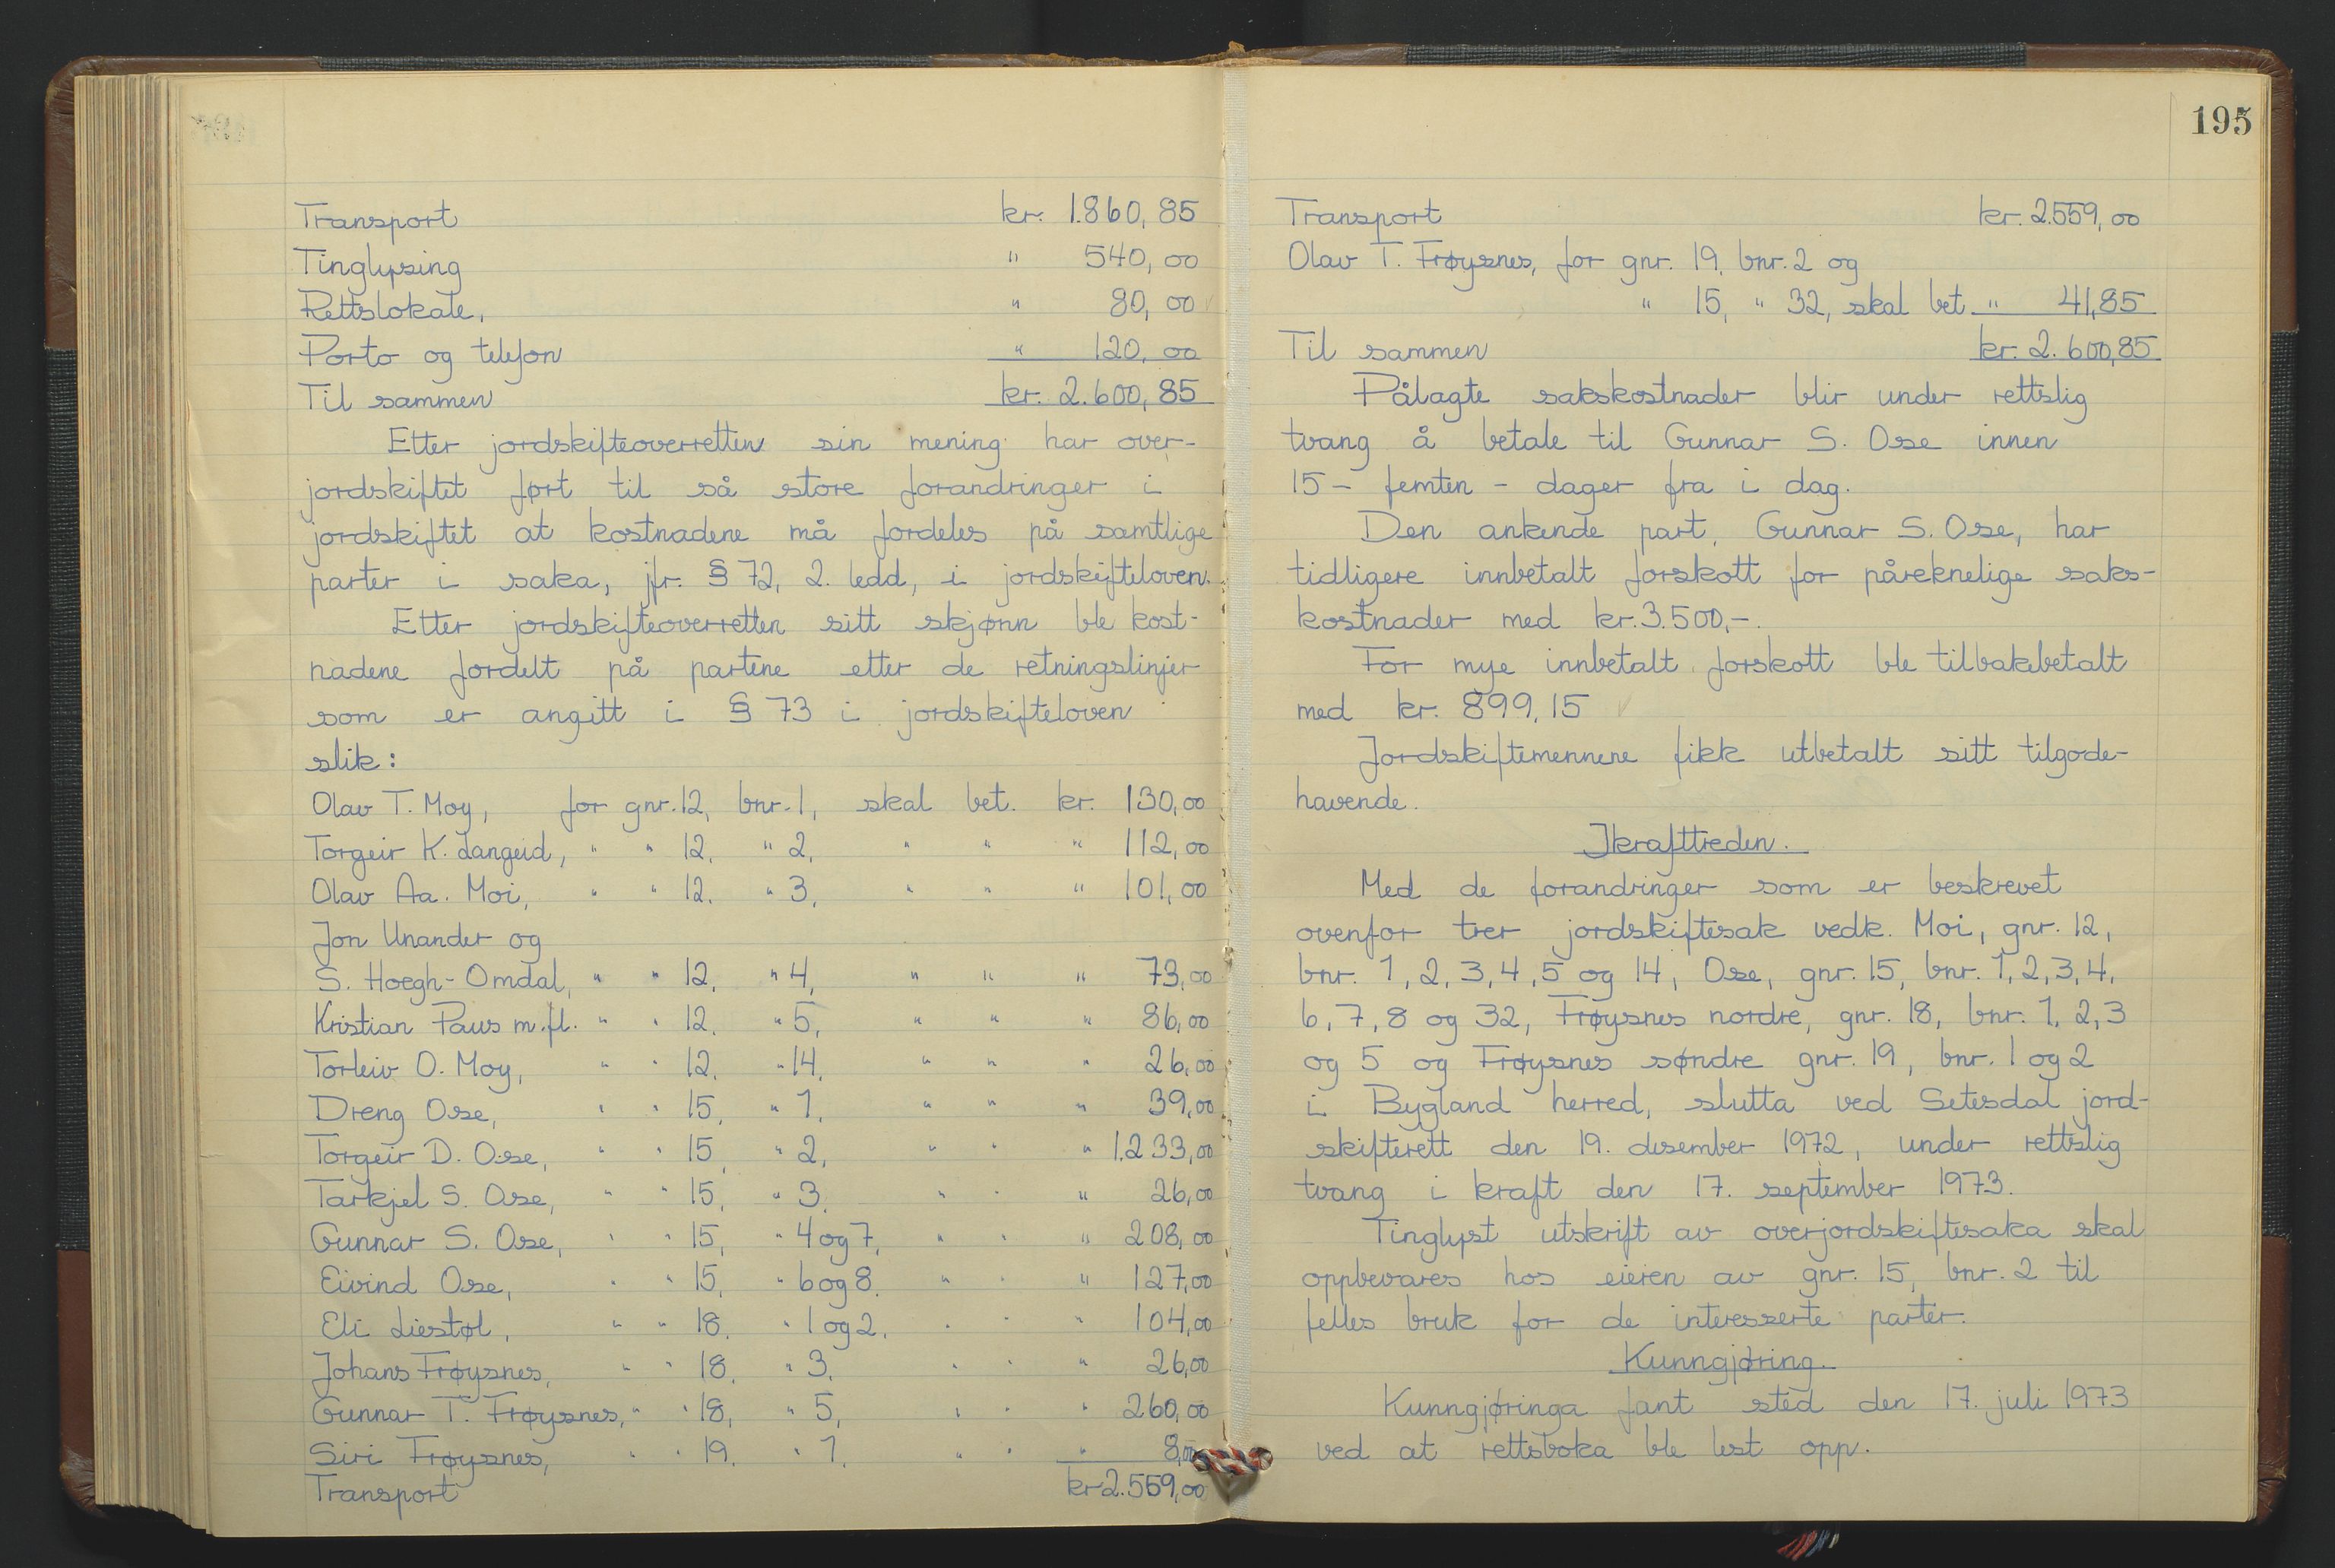 Transport kr. 1.860,85
Tinglysing " 540,00
Rettslokale, " 80,00
Porto og telefon " 120,00
Til sammen kr. 2.600,85
Etter jordskifteoverretten sin mening har over-
jordskiftet ført til så store forandringer i
jordskiftet at kostnadene må fordeles på samtlige
parter i saka, jfr. § 72, 2. ledd, i jordskifteloven.
Etter jordskifteoverretten sitt skjønn ble kost-
nadene fordelt på partene etter de retningslinjer
som er angitt i § 73 i jordskifteloven
slik:
Olav T. Moy, for gnr. 12, bnr. 1, skal bet. kr. 130,00
Torgeir K. Langeid, " " 12, " 2, " " " 112,00
Olav Aa. Moi, " " 12, " 3, " " " 101,00
Jon Unander og
S. Hoegh-Omdal, " " 12, " 4, " " " 73,00
Kristian Paus m.fl. " " 12, " 5, " " " 86,00
Torleiv O. Moy, " " 12, " 14, " " " 26,00
Dreng Ose, " " 15, " 1, " " " 39,00
Torgeir D. Ose, " " 15, " 2, " " " 1.233,00
Tarkjel S. Ose, " " 15, " 3, " " " 26,00
Gunnar S. Ose, " " 15, " 4 og 7, " " " 208,00
Eivind Ose, " " 15, " 6 og 8, " " " 127,00
Eli Liestøl, " " 18, " 1 og 2, " " " 104,00
Johans Frøysnes, " " 18, " 3, " " " 26,00
Gunnar T. Frøysnes, " " 18, " 5, " " " 260,00
Siri Frøysnes, " " 19, " 1, " " " 8,00
Transport kr 2.559,00
195
Transport kr. 2.559,00
Olav T. Frøysnes, for gnr. 19, bnr. 2 og
" 15, " 32, skal bet. " 41,85
Til sammen kr. 2.600,85
Pålagte sakskostnader blir under rettslig
tvang å betale til Gunnar S. Ose innen
15 - femten - dager fra i dag.
Den ankende part, Gunnar S. Ose, har
tidligere innbetalt forskott for påreknelige saks-
kostnader med kr. 3.500,-.
For mye innbetalt forskott ble tilbakebetalt
med kr. 899,15
Jordskiftemennene fikk utbetalt sitt tilgode-
havende.
Ikrafttreden.
Med de forandringer som er beskrevet
ovenfor trer jordskiftesak vedk. Moi, gnr. 12,
bnr. 1, 2, 3, 4, 5 og 14, Ose, gnr. 15, bnr. 1, 2, 3, 4,
6, 7, 8 og 32, Frøysnes nordre, gnr. 18, bnr. 1, 2, 3
og 5 og Frøysnes søndre gnr. 19, bnr. 1 og 2
i Bygland herred, slutta ved Setesdal jord-
skifterett den 19. desember 1972, under rettslig
tvang i kraft den 17. september 1973.
Tinglyst utskrift av overjordskiftesaka skal
oppbevares hos eieren av gnr. 15, bnr. 2 til
felles bruk for de interesserte parter.
Kunngjøring.
Kunngjøringa fant sted den 17. juli 1973
ved at rettsboka ble lest opp.